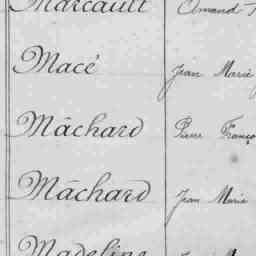 Marcault Amand
Macé Jean Marie
Mâchard Pierre Franço
Mâchard Jean Marie
Madeline